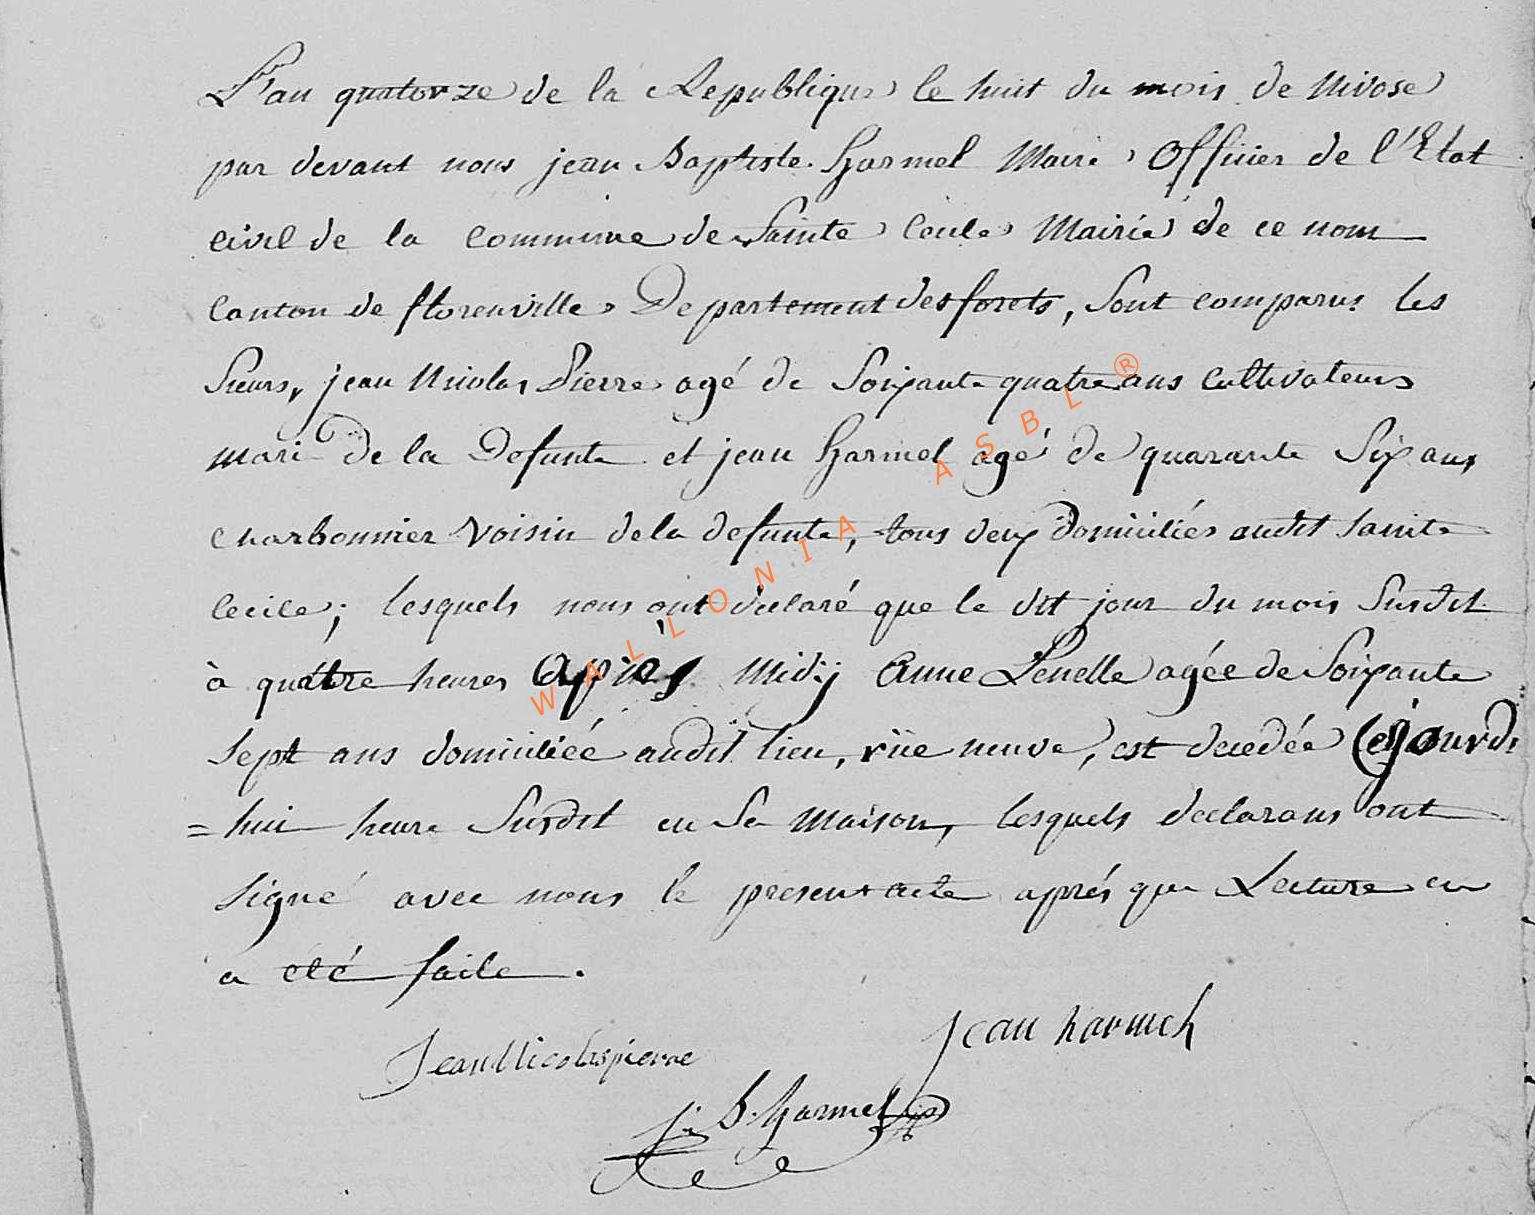 L'an quatorze de la Republique le huit du mois de Nivose
par devant nous jean Baptiste harmel Maire Officier de l'Etat
civil de la commune de Sainte Cecile Mairie de ce nom
Canton de florenville Departement des forets, Sont comparus les
Sieurs, jean Nicolas Pierre agé de Soixante quatre ans cultivateurs
mari de la Defunte et jean harmel agé de quarante Six ans
charbonnier voisin de la defunte, tous deux Domiciliés audit Sainte
Cecile; lesquels nous ont declaré que le dit jour du mois Susdit
à quatre heures après Midij Anne Penelle agée de Soixante
Sept ans domiciliée audit lieu, rüe neuve, est decedée cejourd
= hui heure Susdit en Sa Maison, lesquels declarans ont
Signé avec nous le present acte aprés que Lecture en
a eté faite.
Jean harmel
Jean Nicolas pierre
j. B. harmel
WALLONIA ASBL ®